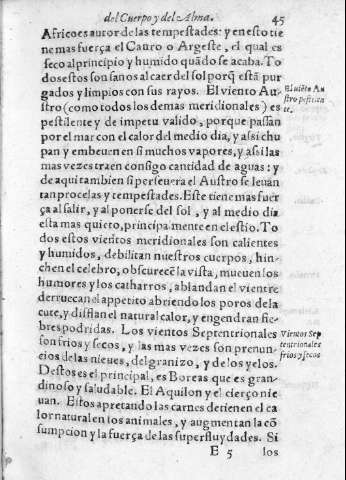 del Cuerpo y del Alma. 45
Africo es autor de las tempestades: y en esto tie
ne mas fuerça el Cauro o Argeste, el qual es
seco al principio y humido quãdo se acaba. To
dos estos son sanos al caer del sol porq̃ estã pur
gados y limpios con sus rayos. El viento Au-
stro (como todos los demas meridionales) es
pestilente y de impetu valido, porque passan
por el mar con el calor del medio dia, y assi chu
pan y embeuen en si muchos vapores, y assi las
mas vezes traen consigo cantidad de aguas: y
de aqui tambien si perseuera el Austro se leuan
tan procelas y tempestades. Este tiene mas fuer
ça al salir, y al ponerse del sol, y al medio dia
esta mas quieto, principalmente en el estio. To
dos estos vientos meridionales son calientes
y humidos, debilitan nuestros cuerpos, hin-
chen el celebro, obscurecẽ la vista, mueuen los
humores y los catharros, ablandan el vientre
derruecan el appetito abriendo los poros dela
cute, y disflan el natural calor, y engendran fie-
bres podridas. Los vientos Septentrionales
son frios y secos, y las mas vezes son prenun-
cios de las nieues, del granizo, y de los yelos.
Destos es el principal, es Boreas que es gran-
dinoso y saludable. El Aquilon y el cierço nie
uan. Estos apretando las carnes detienen el ca
lor natural en los animales, y augmentan la cõ
sumpcion y la fuerça de las superfluydades. Si
E 5 los
El viẽto Au
stro pestilẽ
te.
Vientos Sep
tentrionales
frios y secos